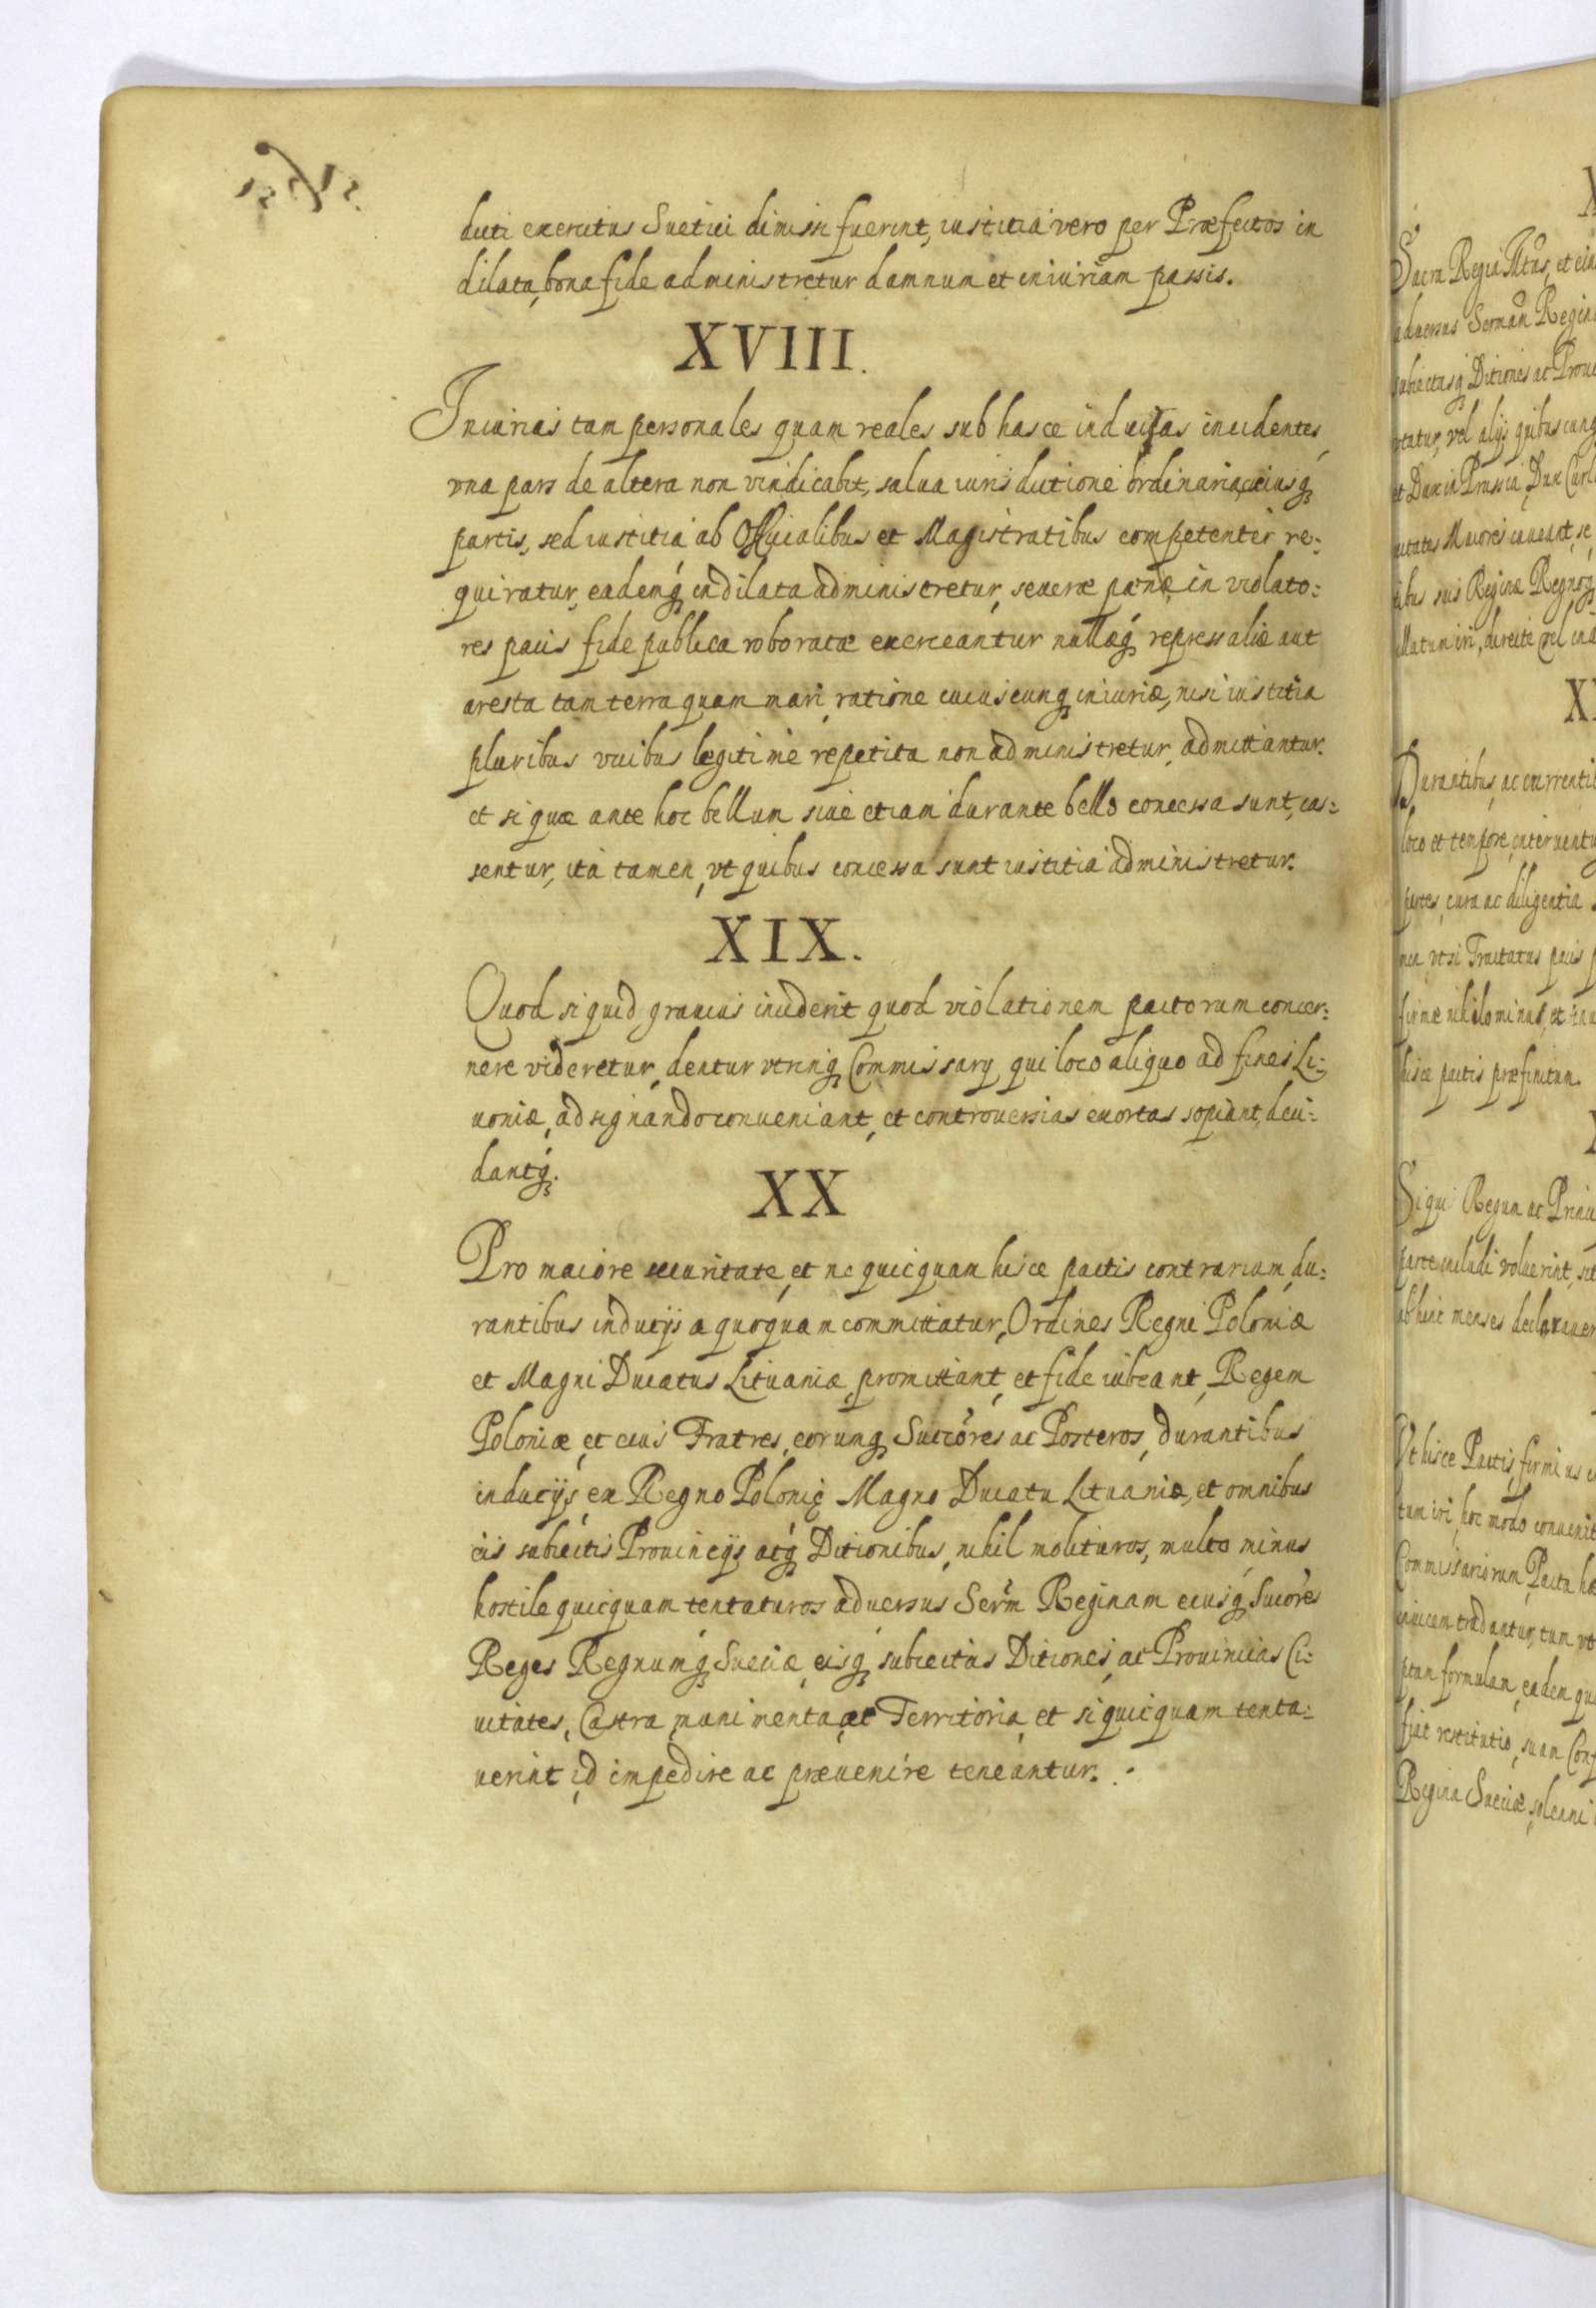 ducti exercitus Suetici dimissi fuerint, iustitia vero per Præfectos in
dilata, bona fide administretur damnum et iniuriam passis.
XVIII.
Iniurias tam personales quam reales sub hasce inducias incidentes,
vna pars de altera non vindicabit, salua iurisdictione ordinaria cuiusq
partis, sed iustitia ab Officialibus et Magistratibus competenter re:
quiratur, eademq indilata administretur, seueræ pœnæ in violato:
res pacis fide publica roboratæ exerceantur nullæq repressaliæ aut
aresta tam terra quam mari, ratione cuiuscunq iniuriæ, nisi iustitia
pluribus vicibus legitime repetita non administretur, admittantur.
et si quæ ante hoc bellum siue etiam durante bello concessa sunt, cas:
sentur, ita tamen, vt quibus concessa sunt iustitia administretur.
XIX.
Quod si quid grauius inciderit quod violationem pactorum concer:
nere videretur, dentur vtrinq Commissarij qui loco aliquo ad fines Li:
uoniæ, adsignando conueniant, et controuersias exortas sopiant, deci:
dantq.
XX
Pro maiore securitate, et ne quicquam hisce pactis contrarium, du:
rantibus inducijs a quoquam committatur, Ordines Regni Poloniæ
et Magni Ducatus Lituaniæ, promittant, et fide iubeant, Regem
Poloniæ, et eius Fratres, eorumq Succōres ac Posteros, durantibus
inducijs, ex Regno Polonię Magno Ducatu Lituaniæ, et omnibus
eis subiectis Prouincijs atq Ditionibus, nihil molituros, multo minus
hostile quicquam tentaturos aduersus Serm̄ Reginam eiusq Sucōres
Reges Regnumq Sueciæ, eisq subiectas Ditiones, ac Prouincias Ci:
uitates, Castra, munimenta, ac Territoria, et si quicquam tenta:
uerint id impedire ac præuenire teneantur.
Sacra Regia
aduersus Sermām
Ditiones ac
vel alijs quibuscunq
et Dux in Prussia, Dux
Maiores caueant, se
suis Reginæ
directe vel
Durantibus, ac currentib
loco et tempore, interuentu
partes, cura ac diligentia
vt si Tractatus pacis
nihilominus, et
hisce pactis præfinitum.
Si qui Regum ac
includi voluerint,
ab hinc menses
Vt hisce Pactis, firmius
iri, hoc modo
Commissariorum, Pacta
inuicem tradantur, tum vt
formulam, eadem
fiat restitutio, suam
Regina Sueciæ,